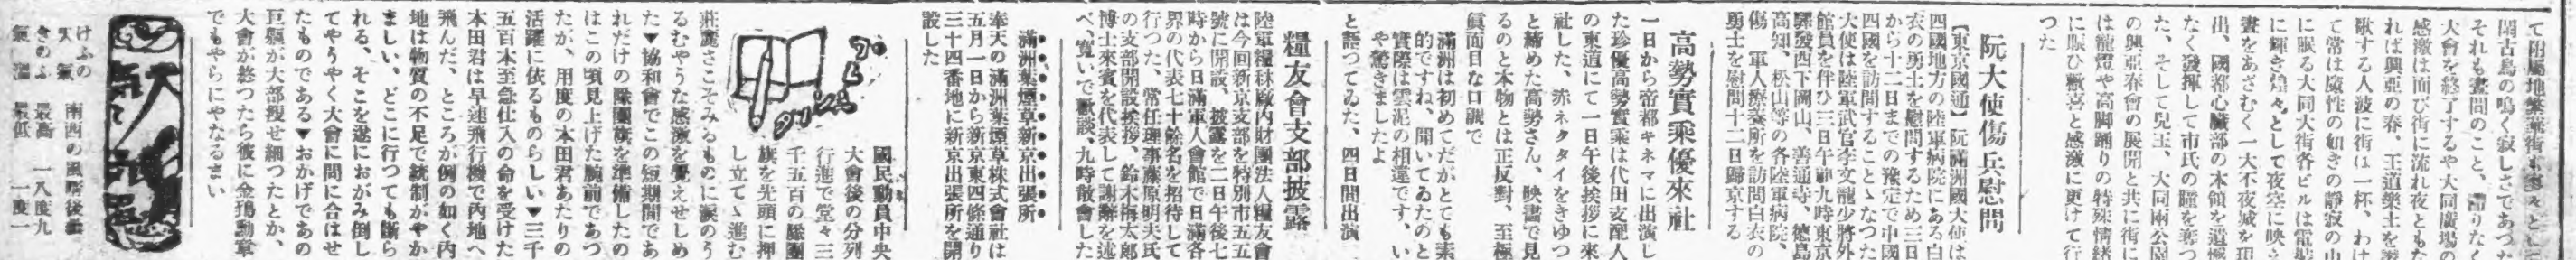 て附屬地繁華街も寥々として
閑古鳥の鳴く寂しさであつた
それも晝間のこと、滯りなく
大會を終了するや大同廣場の
感激は面び街に流れ夜ともな
れば興亞の春、王道樂土を謳
歌する人波に街は一杯、わけ
て常は魔性の如きの靜寂の中
に眠る大同大街各ビルは電飾
に輝き煌々として夜空に映え
晝をあざむく一大不夜城を現
出、國都心臟部の本領を遺憾
なく發揮して市民の瞳を奪つ
た、そして兒玉、大同兩公園
の興亞春會の展開と共に街に
は籠燈や高脚踊りの特殊情緒
に賑ひ歡喜と感激に更けて行
つた
阮大使傷兵慰問
【東京國通】阮滿洲國大使は
四國地方の陸軍病院にある白
衣の勇士を慰問するため三日
から十二日までの豫定で中國
四國を訪問することゝなつた
大使は陸軍武官李文龍少將外
館員を伴ひ三日午前九時東京
驛發西下岡山、善通寺、德島
高知、松山等の各陸軍病院、
傷　軍人療養所を訪問白衣の
勇士を慰問十二日歸京する
高勢實乘優來社
一日から帝都キネマに出演し
た珍優高勢實乘は代田支配人
の東道にて一日午後挨拶に來
社した、赤ネクタイをきゆつ
と締めた高勢さん、映畫で見
るのと本物とは正反對、至極
眞面目な口調で
滿洲は初めてだがとても素
的ですね、聞いてゐたのと
實際は雲泥の相違です、い
や驚きましたよ
と語つてゐた、四日間出演
糧友會支部披露
陸軍糧秣廠內財團法人糧友會
は今回新京支部を特別市五五
號に開設、披露を二日午後七
時から日滿軍人會館で日滿各
界の代表七十餘名を招待して
行つた、常任理事藤原明夫氏
の支部開設挨拶、鈴木梅太郎
博士來賓を代表して謝辭を述
べ、寬いで歡談、九時散會した
滿洲葉煙草新京出張所
奉天の滿洲葉煙草株式會社は
五月一日から新京東四條通り
三十四番地に新京出張所を開
設した
國民動員中央
大會後の分列
行進で堂々三
千五百の隊團
旗を先頭に押
し立てゝ進む
莊嚴さこそみるものに淚のう
るむやうな感激を覺えせしめ
た▼協和會でこの短期間であ
れだけの隊團旗を準備したの
はこの頃見上げた腕前であつ
たが、用度の本田君あたりの
活躍に依るものらしい▼三千
五百本至急仕入の命を受けた
本田君は早速飛行機で內地へ
飛んだ、ところが例の如く內
地は物質の不足で統制がやか
ましい、どこに行つても斷ら
れる、そこを遂におがみ倒し
てやうやく大會に間に合はせ
たものである▼おかげであの
巨軀が大部瘦せ細つたとか、
大會が終つたら彼に金鵄勳章
でもやらにやなるまい
けふの天氣　南西の風晴後曇
きのふ氣溫　最高　一八度九
最低　一度一